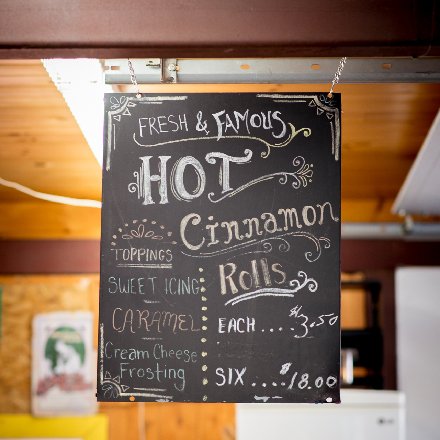 FRESH & FAMOUS
HOT
Cinnamon
Rolls
TOPPINGS
SWEET ICING
CARAMEL
Cream Cheese
Frosting
EACH .... $3.50
SIX .... $18.00